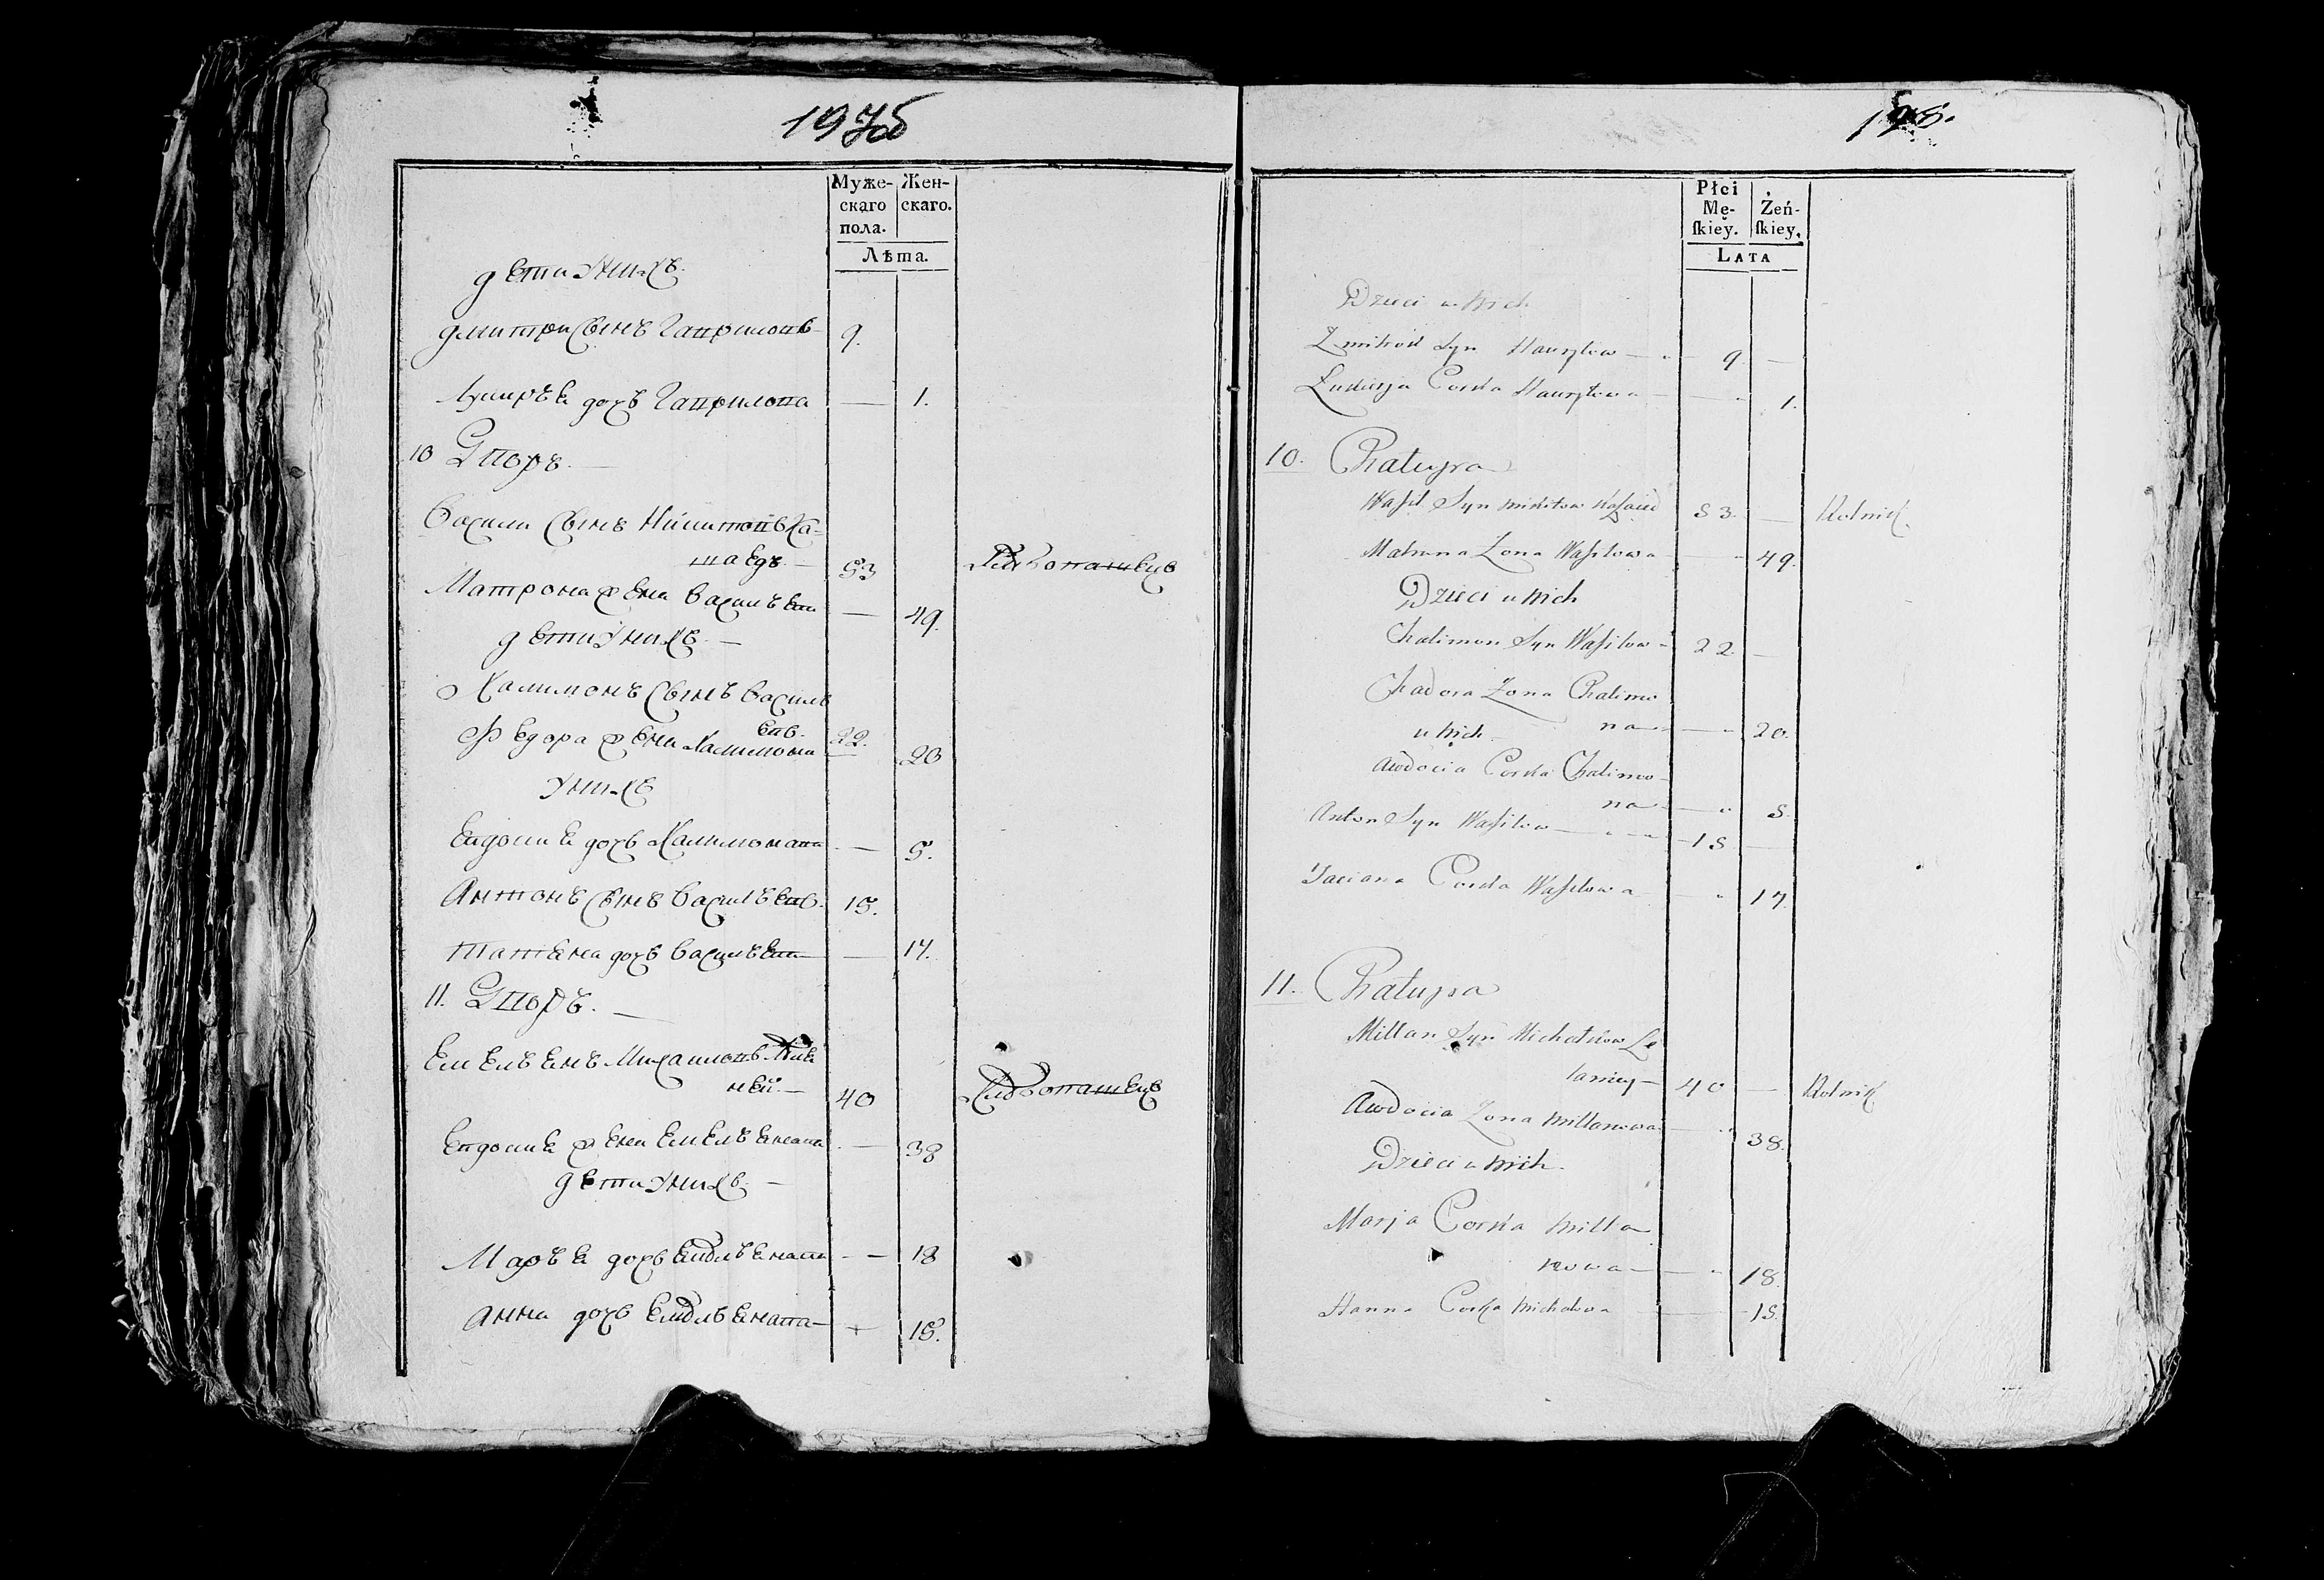 197об
Муже-
скаго
пола.
Жен-
скаго.
Лѣта.
Дети У нихъ.
Дмитри Сынъ Гаврилов 9.
Лукирья дочь Гаврилова — 1.
10 Дворъ. —
Василий Сынъ Никитовъ Ка-
шаедъ — 53 Хлебопашецъ
Матрона жена Васильева — 49.
Дети У нихъ —
Халимонъ Сынъ Василь
евъ. 22.
Федора жена Халимона 20
У нихъ
Евдокия дочь Халимонова — 5.
Антонъ Сынъ Васильевъ. 15.
Татьяна дочь Васильева — 17.
11. Дворъ. —
Емельянъ Михайловъ
ней. — 40 Хлебопашецъ
Евдокия жена Емельянова — 38
Дети У нихъ. —
Марья дочь Емельянова — 18
Анна дочь Емельянова — 15.
198.
Płci
Mę-
ſkiey.
Żeń-
ſkiey.
Lata
Dzieci u Nich
Zmitrok Syn Hauryłow — 9. —
Łukirja Corka Hauryłowa — 1.
10. Chatupa
Waſil Syn Mikitow Kaſzaied 53. — Rolnik.
Matruna Zona Waſilowa — 49.
Dzieci u Nich
Chalimon Syn Waſilow 22. —
Chadora Zona Chalimo
na — 20.
u Nich —
Awdocia Corka Chalimo-
na — 5.
Anton Syn Waſilow — 15 —
Taciana Corka Waſilowa — 17.
11. Chatupa
Millan Syn Michałow
40 — Rolnik
Awdocia Zona Millanowa — 38.
Dzieci u Nich.
Marja Corka Milla
nowa — 18.
Hanna Corka Michałowa — 15.